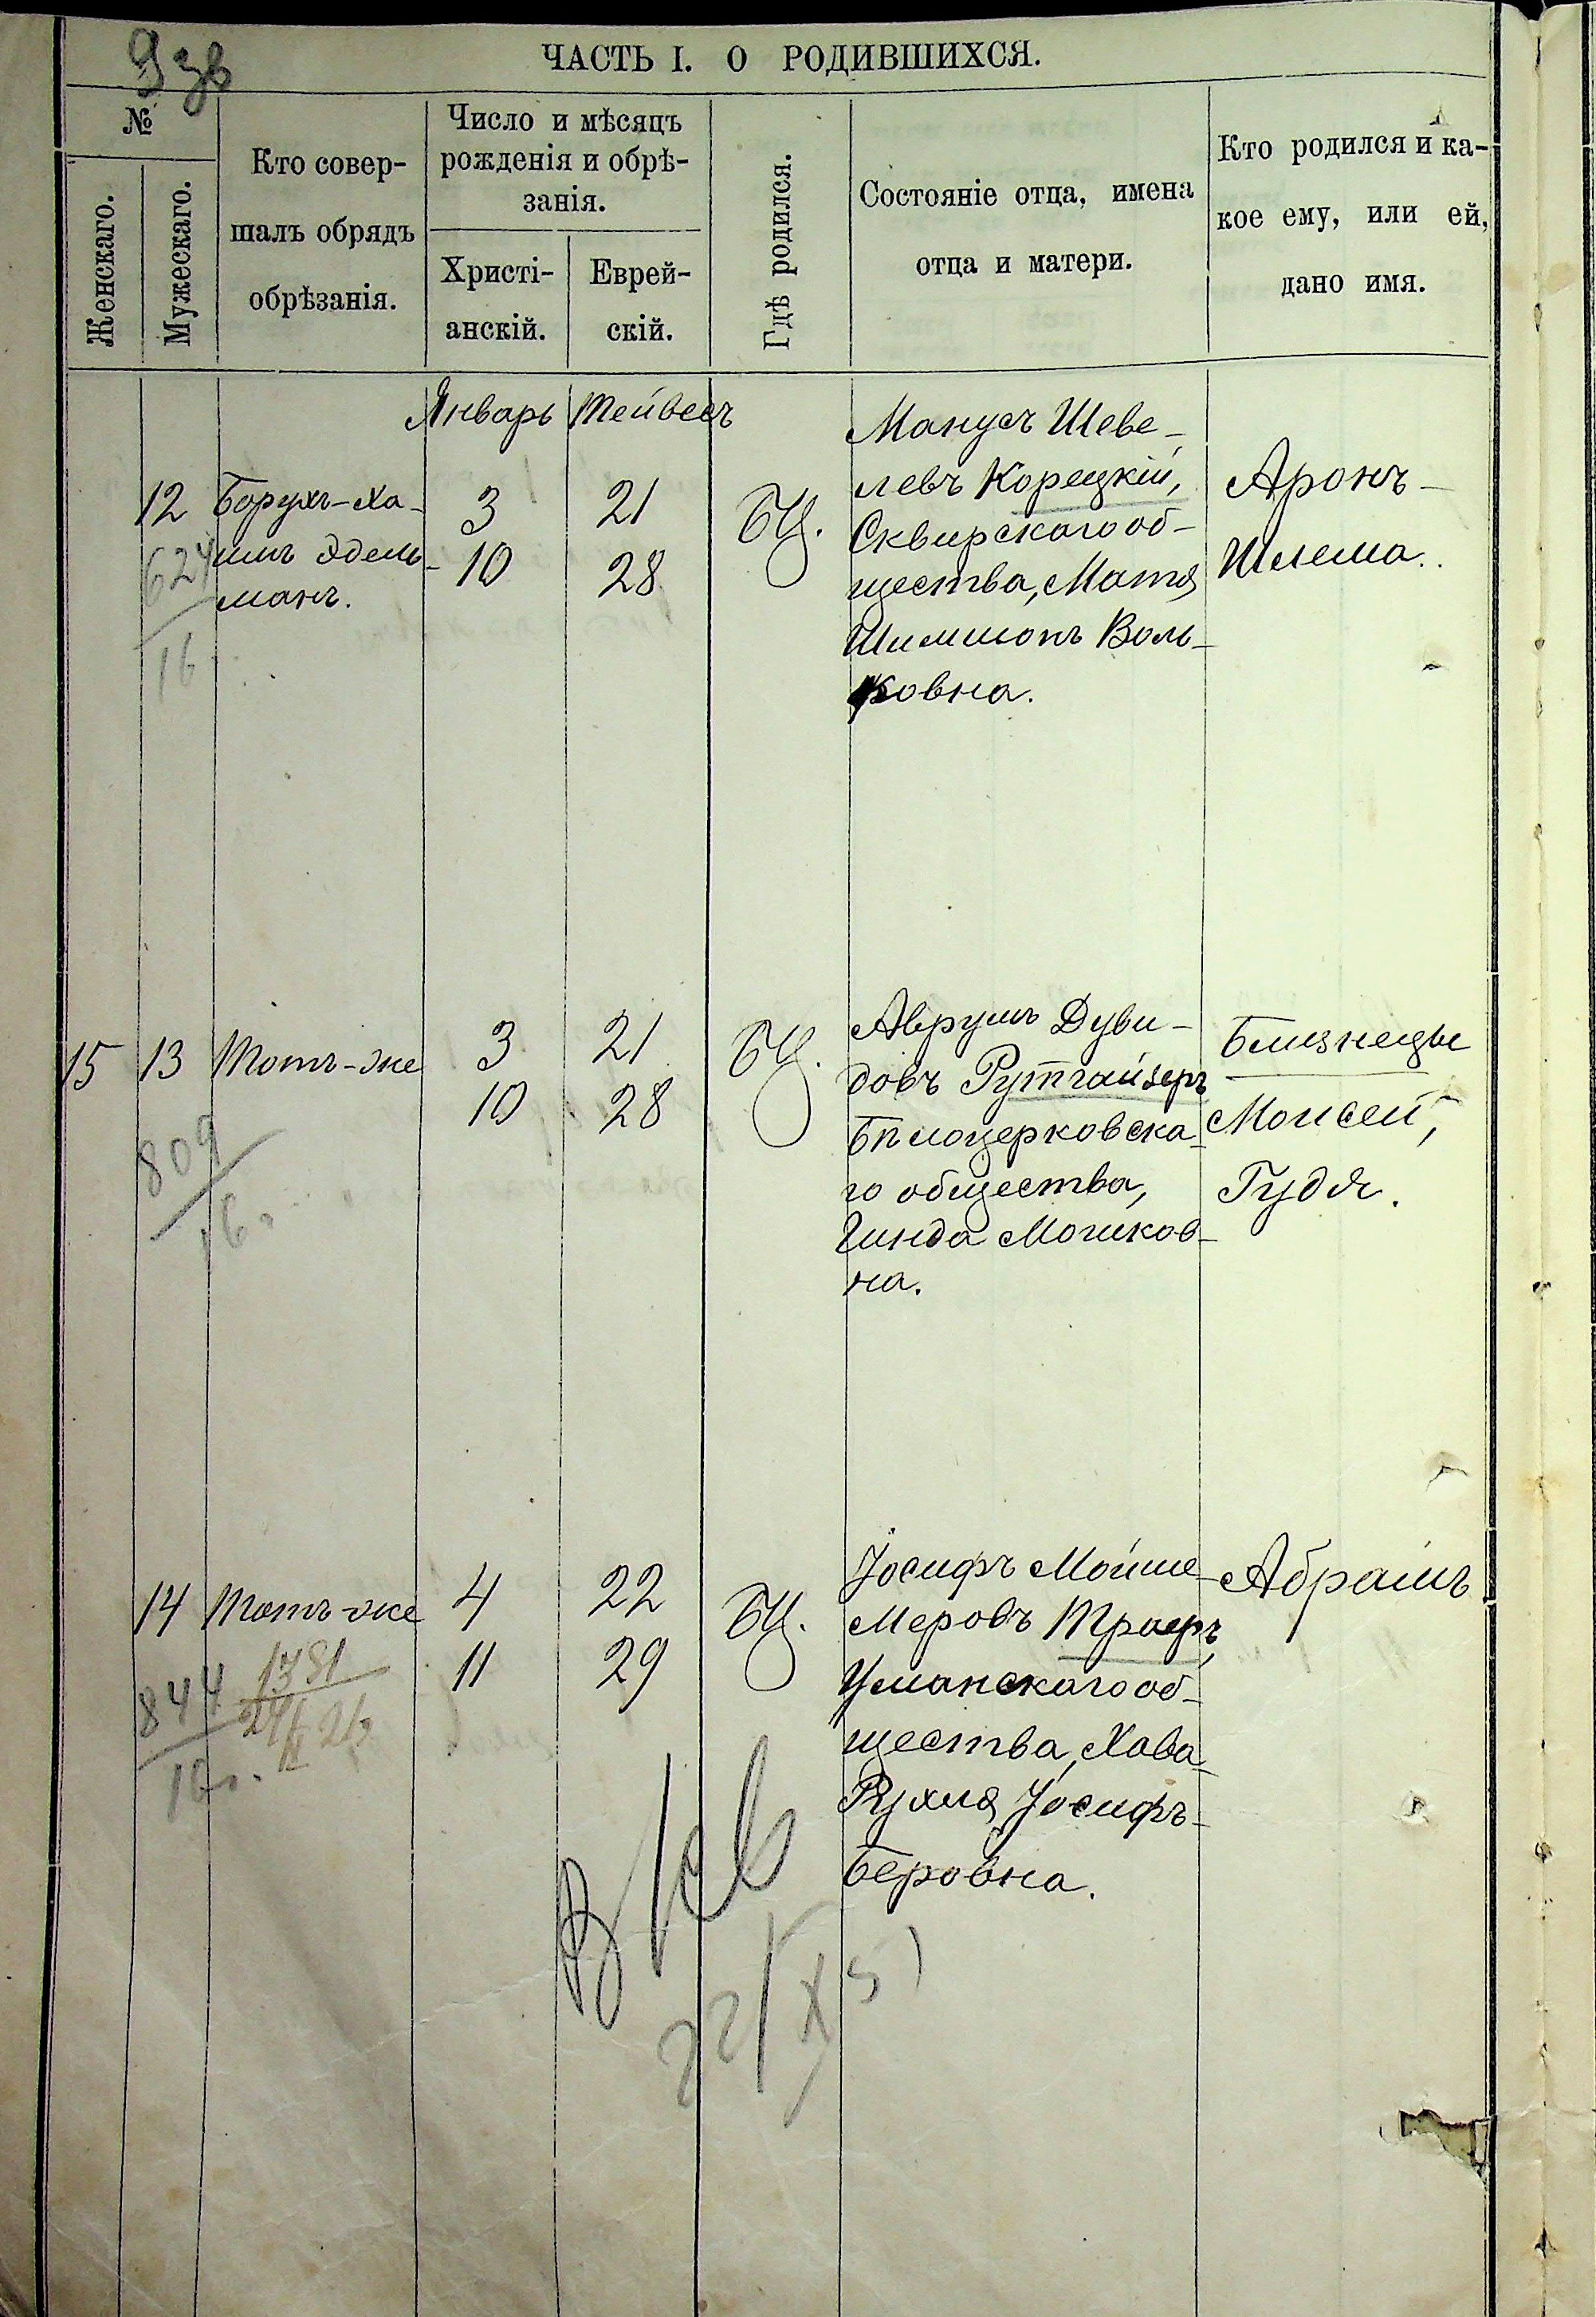 9 зв
ЧАСТЬ I. О РОДИВШИХСЯ.
№
Женскаго.
Мужескаго.
Кто совер-
шалъ обрядъ
обрѣзанія.
Число и мѣсяцъ
рожденія и обрѣ-
занія.
Христі-
анскій.
Еврей-
скій.
Гдѣ родился.
Состояніе отца, имена
отца и матери.
Кто родился и ка-
кое ему, или ей,
дано имя.
Январь Тейвесъ
12
Борухъ-Ха-
имъ Эдель-
манъ.
3 21
10 28
БЦ.
Манусъ Шеве-
левъ Корецкій,
Сквирскаго об-
щества, Матя
Шимшонъ Воль-
ковна.
Аронъ-
Шлема.
624
16
15 13 Тотъ-же
3 21
10 28
БЦ.
Аврумъ Дуви-
довъ Рутгайзеръ
Бѣлоцерковска-
го общества,
Гинда Мошков-
на.
Близнецы
Моисей,
Гудя.
809
16г.
14 Тотъ-же
4 22
11 29
БЦ.
Іосифъ Мойше-
Меровъ Троеръ,
Уманскаго об-
щества, Хава-
Рухля Іосифъ-
Беровна.
Абрамъ
844
16г.
1781
22/X 51